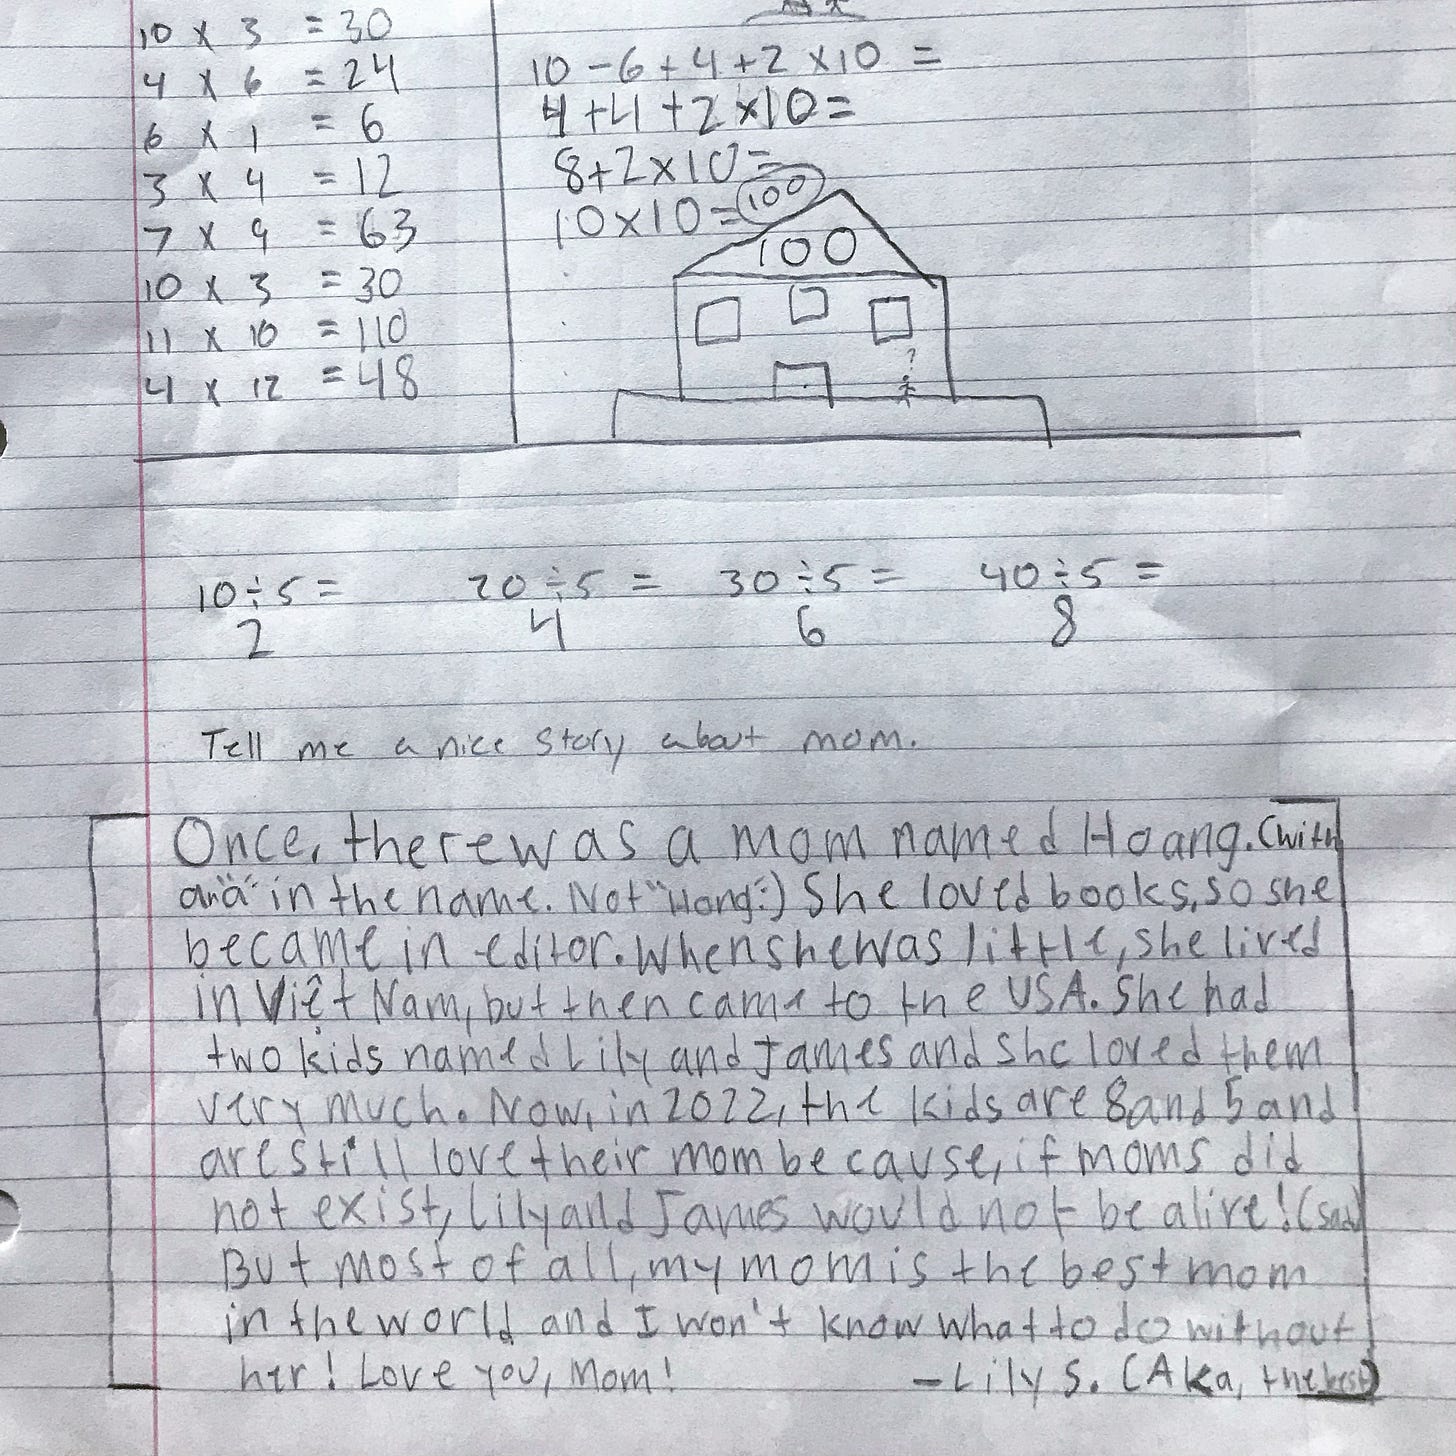 10 x 3 = 30
4 x 6 = 24
6 x 1 = 6
3 x 4 = 12
7 x 9 = 63
10 x 3 = 30
11 x 10 = 110
4 x 12 = 48
10 - 6 + 4 + 2 x 10 =
4 + 4 + 2 x 10 =
8 + 2 x 10 =
10 x 10 = 100
100
?
10 ÷ 5 = 20 ÷ 5 = 30 ÷ 5 = 40 ÷ 5 =
2 4 6 8
Tell me a nice story about mom.
Once, there was a mom named Hoang. (with
an "a" in the name. Not "Hong".) She loved books, so she
became in editor. When she was little, she lived
in Việt Nam, but then came to the USA. She had
two kids named Lily and James and she loved them
very much. Now, in 2022, the kids are 8 and 5 and
are still love their mom because, if moms did
not exist, Lily and James would not be alive! (sad)
But most of all, my mom is the best mom
in the world and I won't know what to do without
her! Love you, Mom! - Lily S. (Aka, the best)